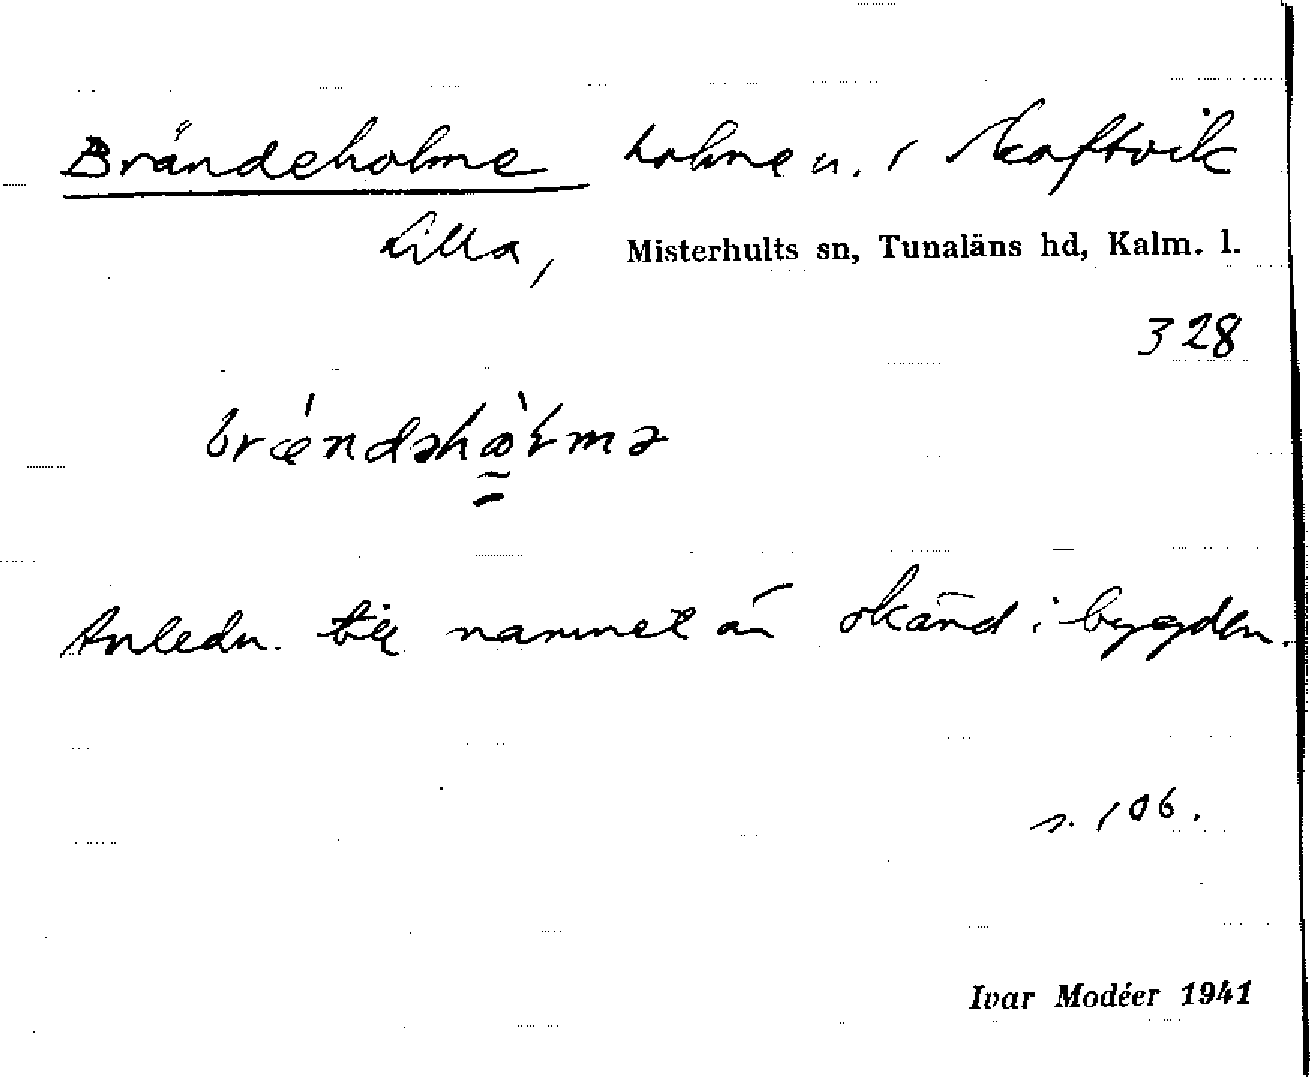 Brändeholme holme n. i Skaftvik
Lilla,
Misterhults sn, Tunaläns hd, Kalm. l.
328
brǽndəhòlmə
Anledn. till namnet är okänd i bygden.
s. 106.
Ivar Modéer 1941